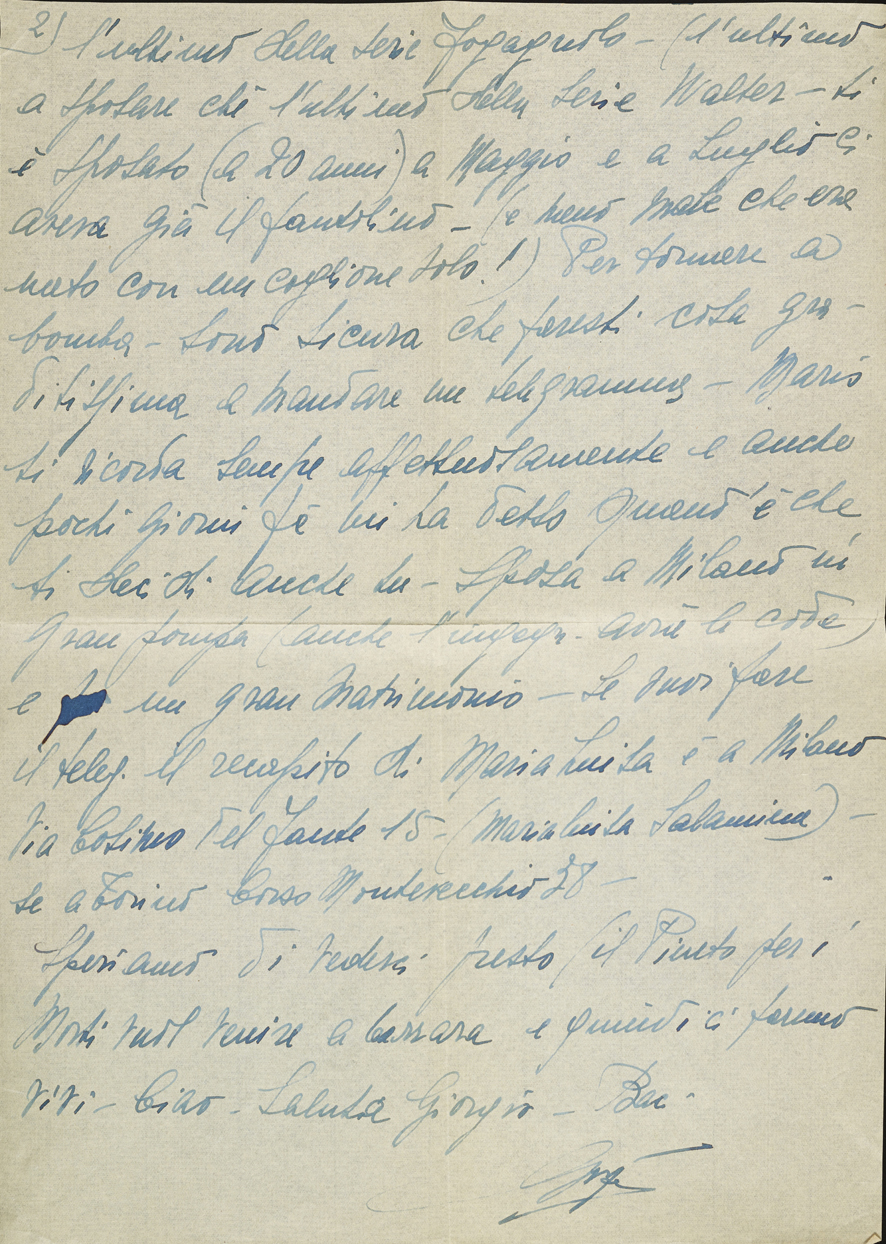 2) l'ultimo della serie Fogagnolo - (l'ultimo
a sposare chè l'ultimo della serie Walter - si
è sposato (a 20 anni) a Maggio e a Luglio ci
aveva già il fantolino - (e meno male che era
nato con un coglione solo!) Per tornare a
bomba - sono sicura che faresti cosa gra-
ditissima a mandare un telegramma - Mario
ti ricorda sempre affettuosamente e anche
pochi giorni fà mi ha detto quand'è che
ti decidi anche tu - Sposa a Milano in
gran pompa (anche l'ingegn. avrà la coda)
e un gran matrimonio - Se vuoi fare
il teleg. il recapito di Maria Luisa è a Milano
Via Cosimo del Fante 15 - (Marialuisa Salamina) -
se a Torino Corso Montevecchio 38 -
Speriamo di vederci presto (il Pineto per i
Morti vuol venire a Carrara e quindi ci faremo
vivi - Ciao - Saluta Giorgio - Baci